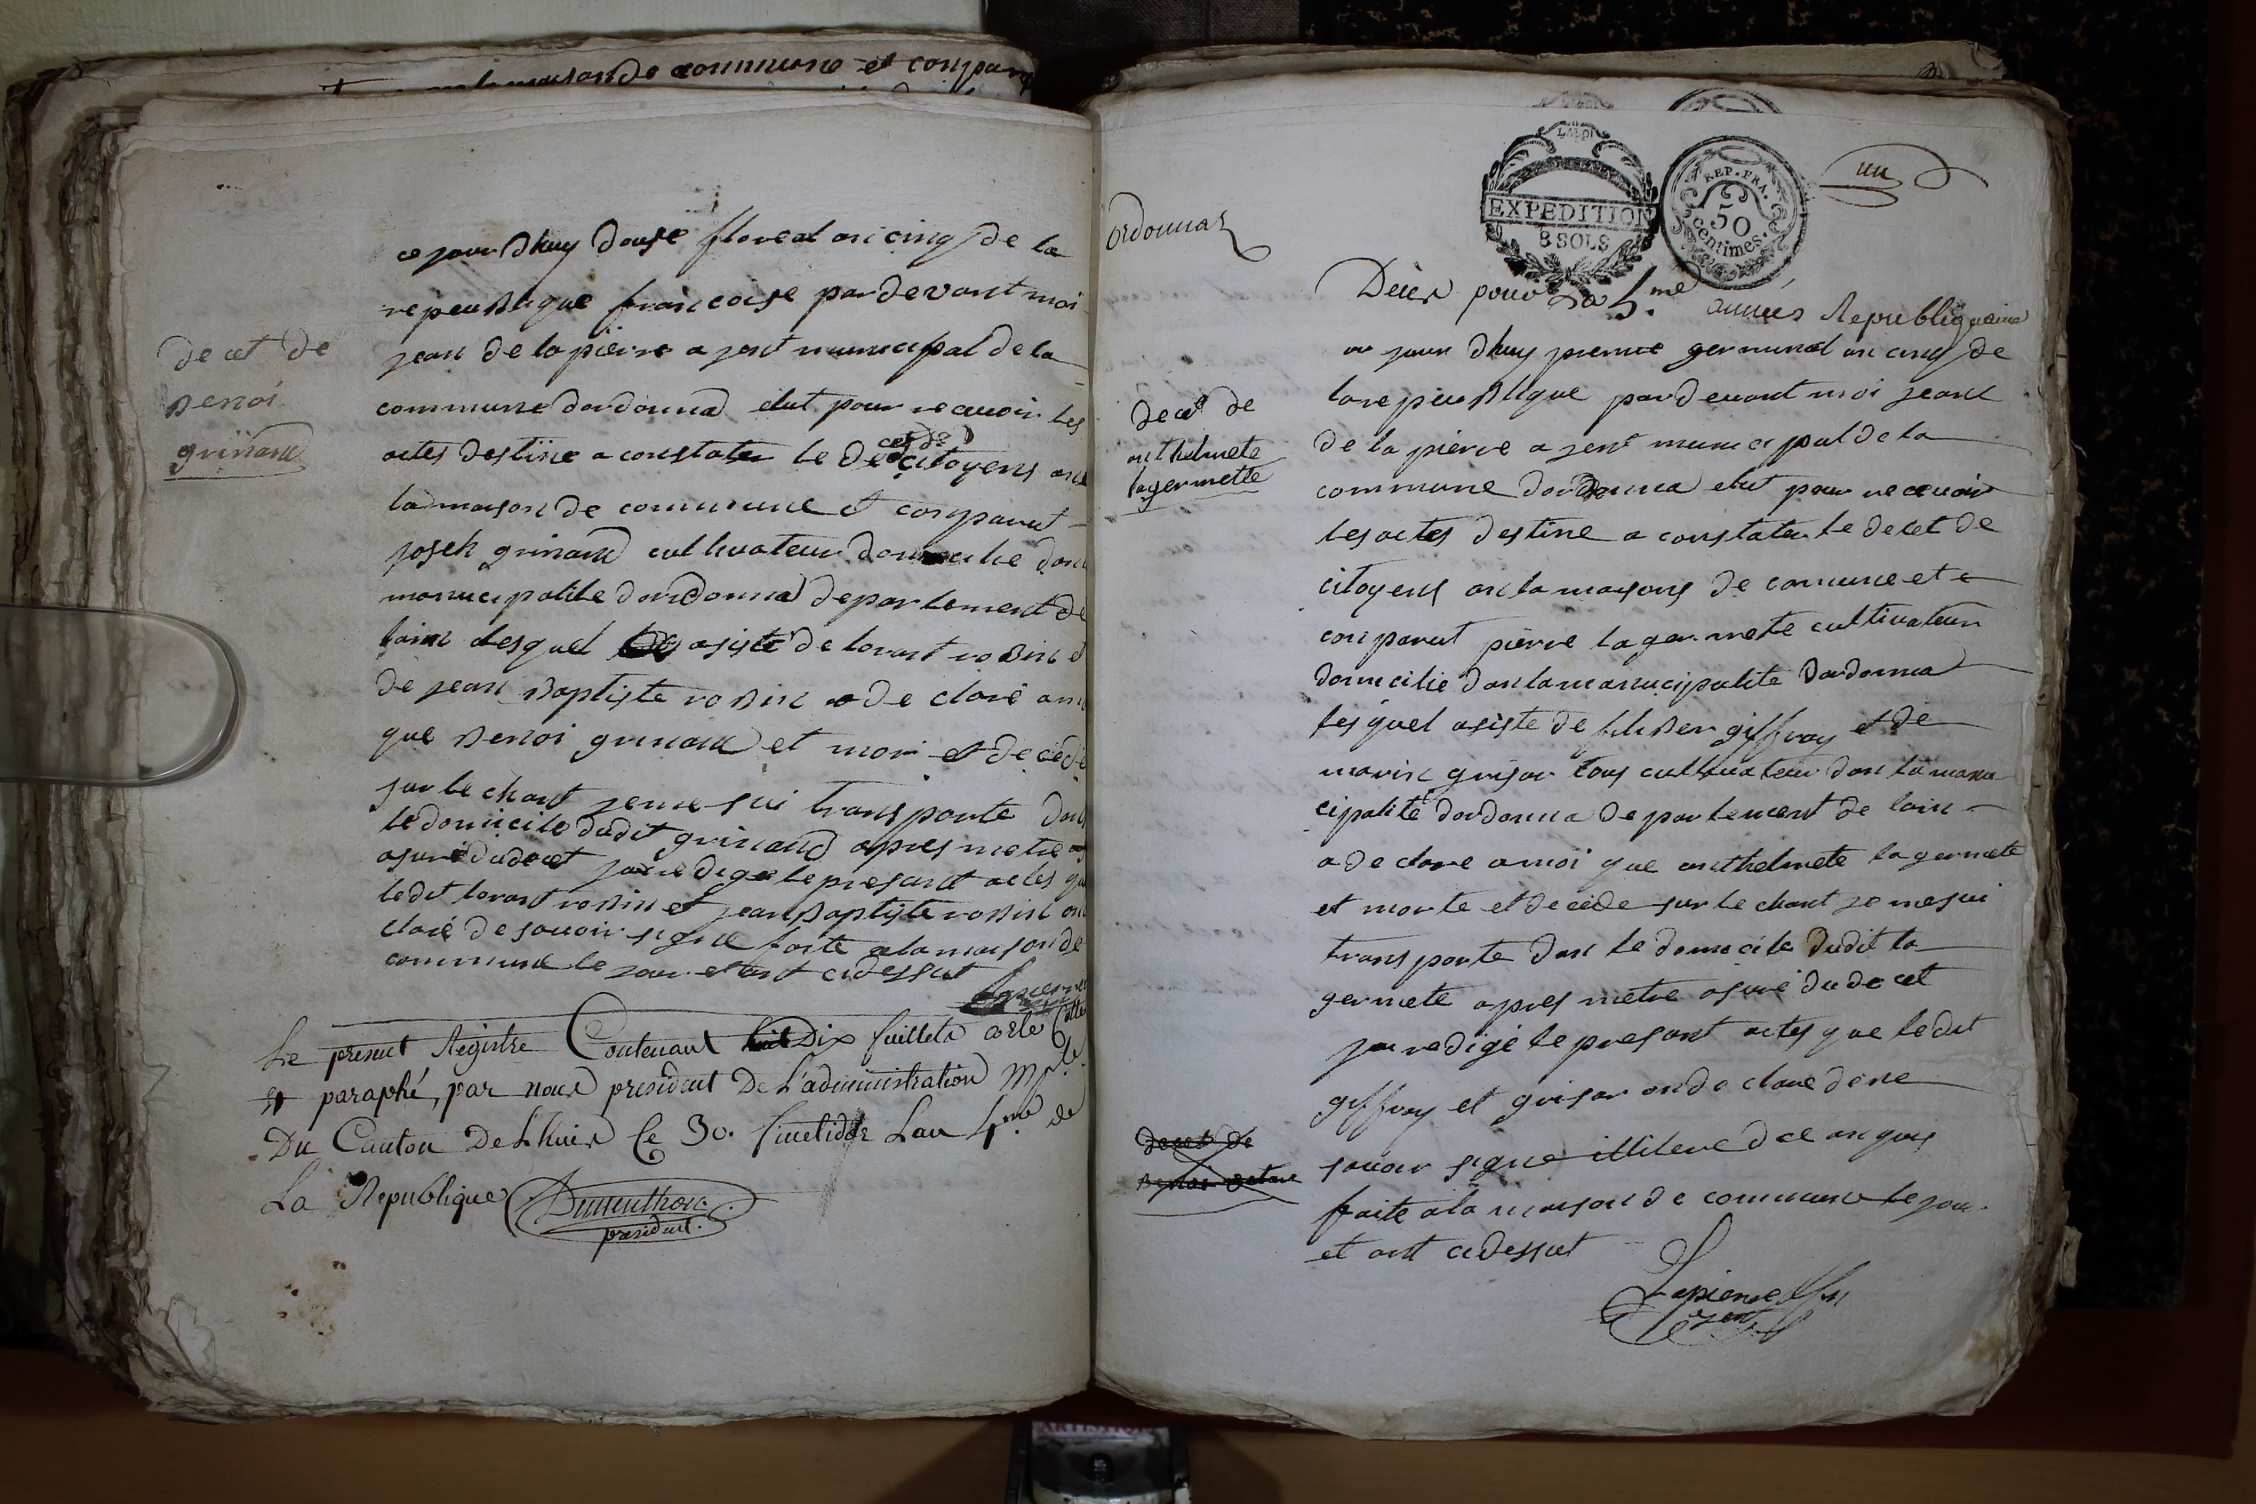 maison de commune et compar
ce jour dhuy douse floreal an cinq de la
repeublique francoise par devant moi
jean de la pierre a jent municipal de la
commune dordonna elut pour recevoir les
actes destine a constater le deces de citoyens an
la maison de commune et comparut
joseh grinand cultivateur domicilie dan
manucipalite dordonna departement de
lain lesquel asiste de lorant robin et
de jean baptiste robin a de claré a m
que benoi grinand et mor et decede
sur le chant je me sui transporte dans
le domicile dudit grinand apres metre
asuré du decet jai redige le presant actes que
ledit lorant robin et jean baptiste robin on
claré de savoir signe faite a la maison de
commune le jour et ant cidessut
lapierre
decet de
benoi
grinand
Le present Registre Contenant Dix feuillets a été Cotté
et paraphé, par nous president De L'administration Mple
Du Canton De Lhuis Ce 30. fructidor Lan 4.me de
La Republique
president.
ordonnaz
EXPEDITION
8 SOLS
REP. FRA.
50
centimes.
un
Décès pour La 5.me année Republiquaine
ce jour dhuy premie germinal an cinq de
la repeublique par devant moi jean
de la pierre a jent municipal de la
commune dordonna elut pour recevoir
les actes destine a constater le decet de
citoyens an la maisons de comune et
comparut pierre lagermete cultivateur
domicilie dan la manucipalite dordonna
lesquel asiste de giffray et de
marin grisar tous cultivateur dan la manu
cipalité dordonna departement de lain
a de clare a moi que anthelmete lagermete
et morte et decede sur le chant je me sui
transporte dan le domicile dudit la
germete apres metre asuré du decet
jai redigé le presant actes que ledit
giffray et grisar on de clare de ne
savoir signe illitere de ce anquis
faite a la maison de commune le jour
et ant cidessut
Lapierre
ajent
decet de
anthelmete
lagermette
decet de